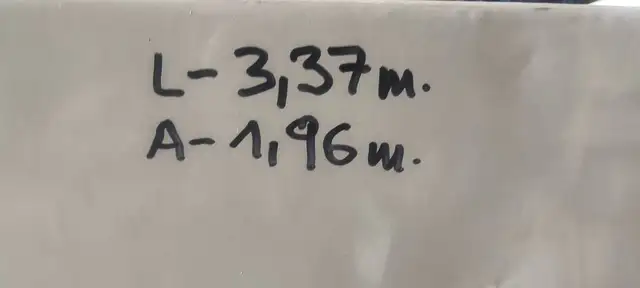 L-3,37m.
A-1,96m.